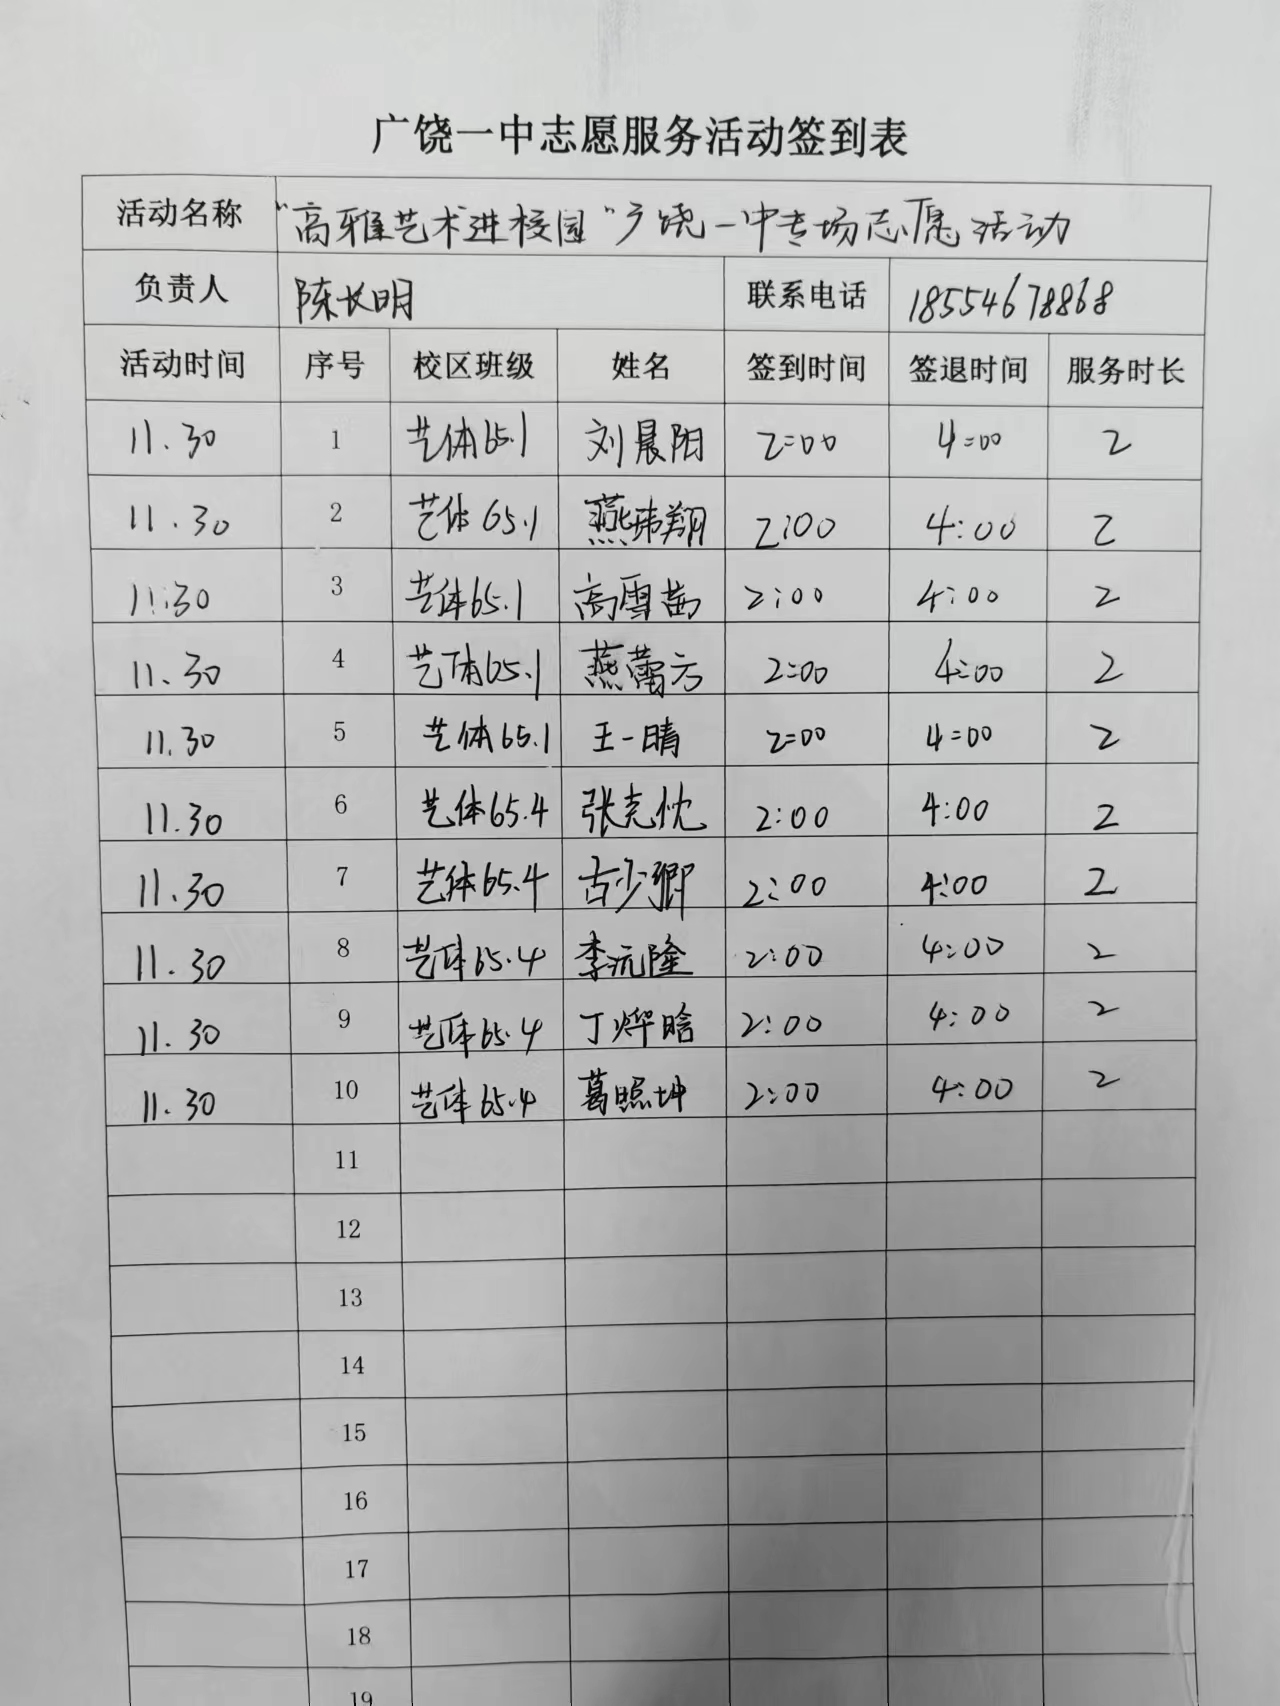 广饶一中志愿服务活动签到表
活动名称 "高雅艺术进校园"广饶一中专场志愿活动
负责人 陈长明 联系电话 18554678868
活动时间 序号 校区班级 姓名 签到时间 签退时间 服务时长
11.30 1 艺体65.1 刘晨阳 2:00 4:00 2
11.30 2 艺体65.1 燕玮翔 2:00 4:00 2
11.30 3 艺体65.1 高雪茜 2:00 4:00 2
11.30 4 艺体65.1 燕蕾方 2:00 4:00 2
11.30 5 艺体65.1 王一晴 2:00 4:00 2
11.30 6 艺体65.4 张克忱 2:00 4:00 2
11.30 7 艺体65.4 古少卿 2:00 4:00 2
11.30 8 艺体65.4 李沅隆 2:00 4:00 2
11.30 9 艺体65.4 丁烨晗 2:00 4:00 2
11.30 10 艺体65.4 葛照坤 2:00 4:00 2
11
12
13
14
15
16
17
18
19